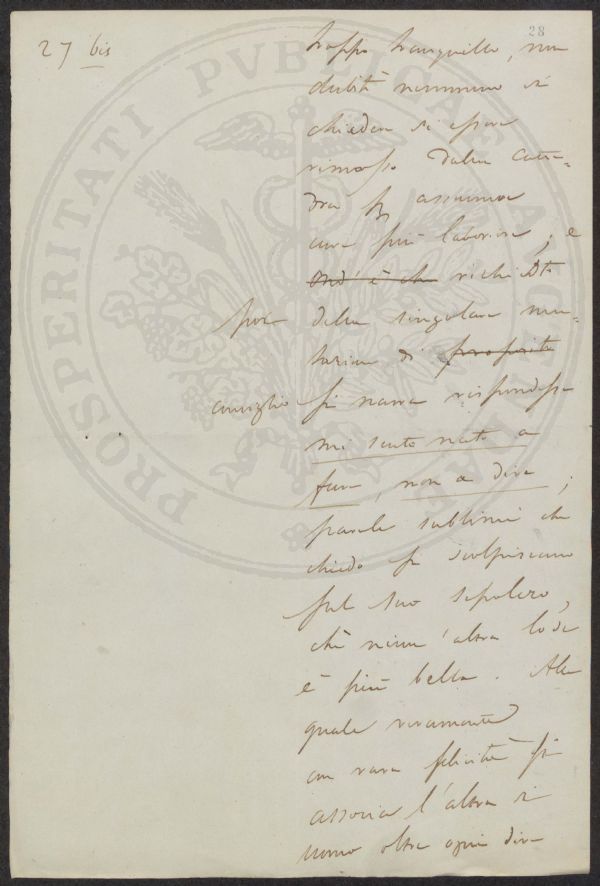 28
27 bis
PROSPERITATI PVBLICAE AVGENDAE
troppo tranquillo, non
dubitò nemmeno di
chiedere di essere
rimosso dalla catte-
dra per assumere
cure più laboriose; e
ond'è che richiesto
poi della singolare mu-
tazione di proposito
consiglio si narra rispondesse
mi sento nato a
fare, non a dire;
parole sublimi che
chiedo si scolpiscano
sul suo sepolcro,
chè niun'altra lode
è più bella. Alla
quale veramente
con rara felicità si
associa l'altra di
uomo oltre ogni dire